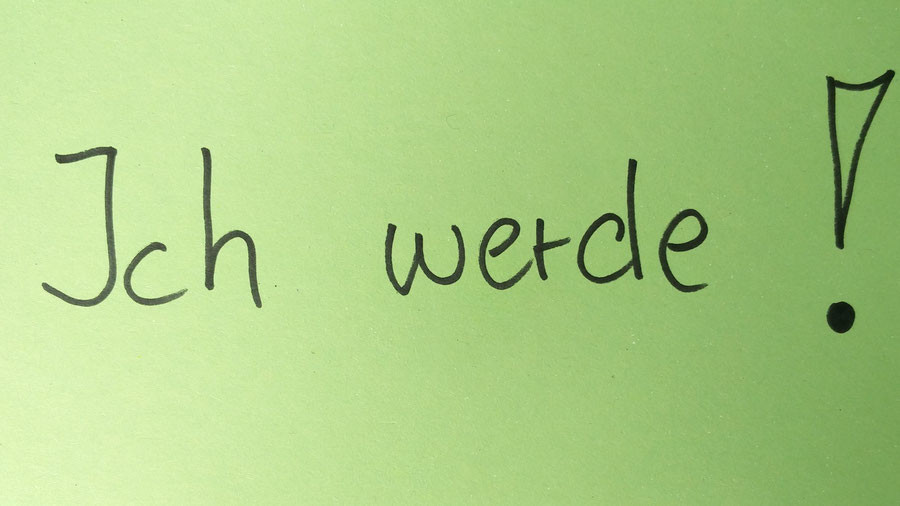 Ich werde !